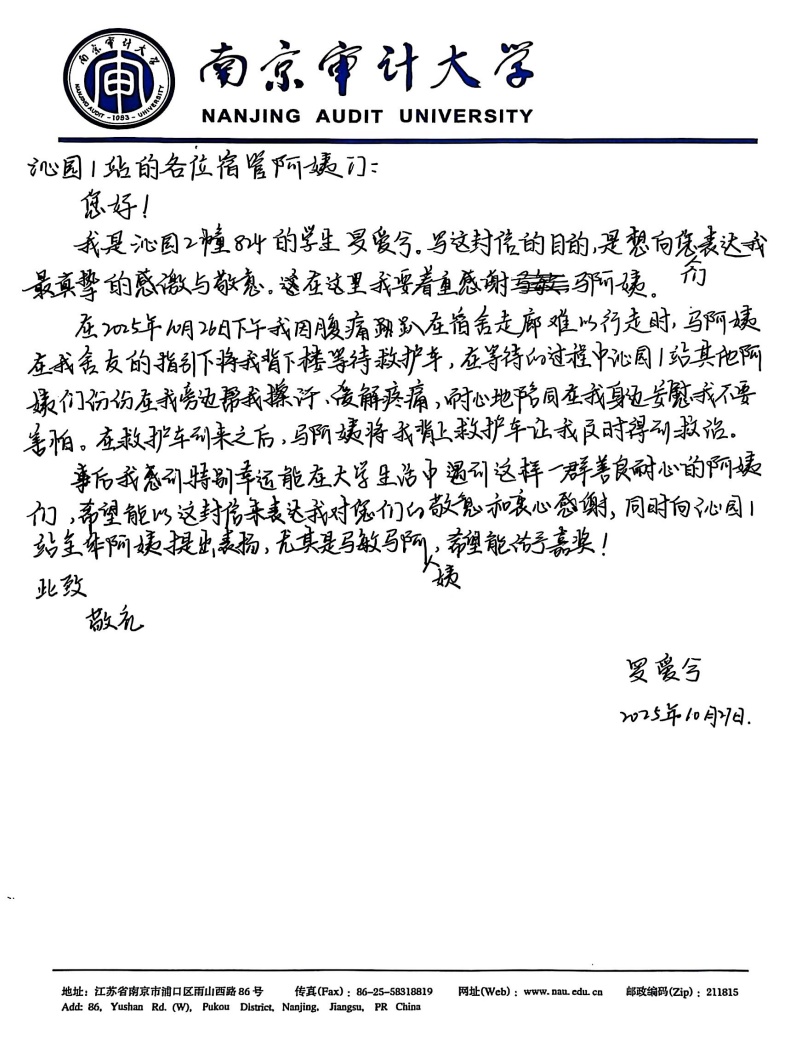 南京审计大学
NANJING AUDIT UNIVERSITY
南京审计大学
NANJING AUDIT UNIVERSITY
1983
沁园1站的各位宿管阿姨们：
您好！
我是沁园2幢824的学生罗爱兮。写这封信的目的，是想向您们表达我
最真挚的感激与敬意。还在这里我要着重感谢马阿姨。
在2025年10月26日下午我因腹痛趴在宿舍走廊难以行走时，马阿姨
在我舍友的指引下将我背下楼等待救护车，在等待的过程中沁园1站其他阿
姨们份份在我旁边帮我擦汗、缓解疼痛，耐心地陪同在我身边安慰我不要
害怕。在救护车到来之后，马阿姨将我背上救护车让我及时得到救治。
事后我感到特别幸运能在大学生活中遇到这样一群善良耐心的阿姨
们，希望能以这封信来表达我对您们的敬意和衷心感谢，同时向沁园1
站全体阿姨提出表扬，尤其是马敏马阿姨，希望能给予嘉奖！
此致
敬礼
罗爱兮
2025年10月27日.
地址：江苏省南京市浦口区雨山西路86号 传真(Fax)：86-25-58318819 网址(Web)：www.nau.edu.cn 邮政编码(Zip)：211815
Add: 86, Yushan Rd. (W), Pukou District, Nanjing, Jiangsu, PR China